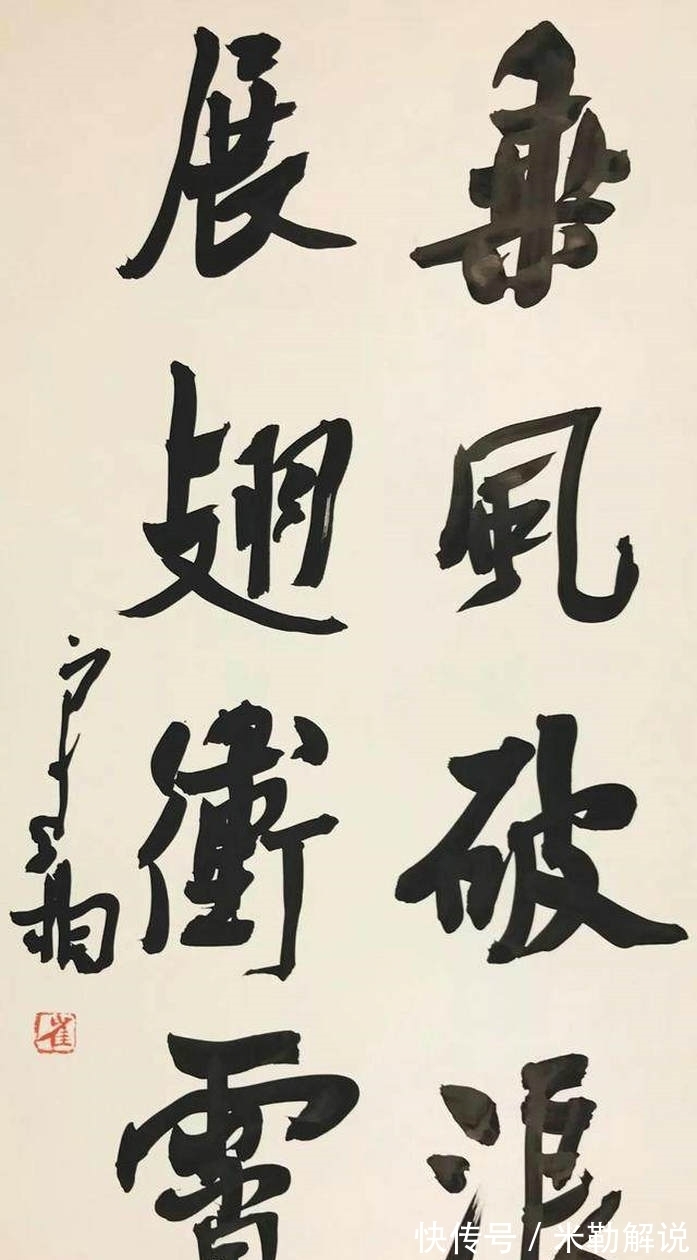 乘风破浪
展翅衝霄
崔
快传号 / 米勒解说